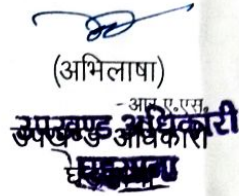 (अभिलाषा)
आर.ए.एस.
उपखण्ड अधिकारी
उपखण्ड अधिकारी